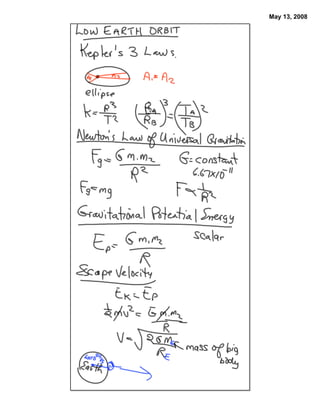 May 13, 2008
LOW EARTH ORBIT
Kepler's 3 Laws.
A₁=A₂
ellipse
K=R³/T² (RA/RB)³=(TA/TB)²
Newton's Law of Universal Gravitation
Fg=G m₁m₂/R² G=constant
6.67x10⁻¹¹
Fg=mg F∝1/R²
Gravitational Potential Energy
Ep=G m₁m₂/R scalar
Escape Velocity
EK=EP
½mv²=G m₁m₂/R
V=√2GmE/RE mass of big
body
Earth